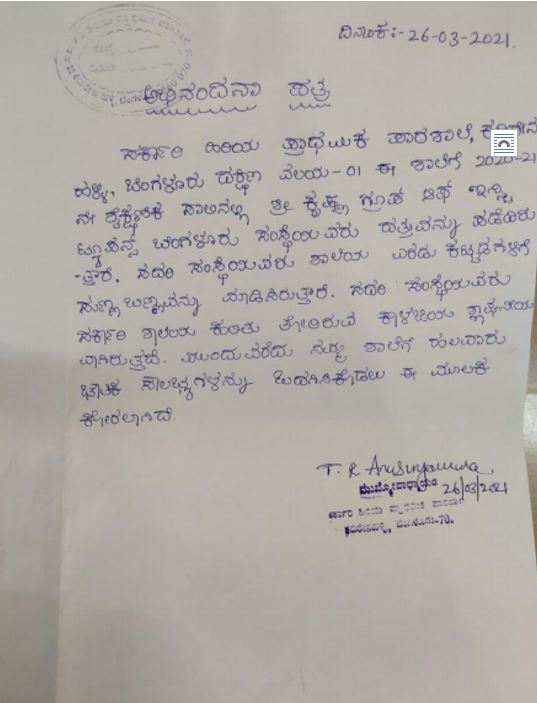 ದಿನಾಂಕ:-26-03-2021.
ಅಭಿನಂದನಾ ಪತ್ರ
ಸರ್ಕಾರಿ ಹಿರಿಯ ಪ್ರಾಥಮಿಕ ಪಾಠಶಾಲೆ,
ಹಳ್ಳಿ, ಬೆಂಗಳೂರು ದಕ್ಷಿಣ ವಲಯ-01 ಈ ಶಾಲೆಗೆ 2020-21
ನೇ ಶೈಕ್ಷಣಿಕ ಸಾಲಿನಲ್ಲಿ ಶ್ರೀ ಕೃಷ್ಣ ಗ್ರೂಪ್ ಆಫ್ ಇನ್ಸ್ಟಿ
ಟ್ಯೂಶನ್ಸ್ ಬೆಂಗಳೂರು ಸಂಸ್ಥೆಯವರು ದತ್ತುವನ್ನು ಪಡೆದಿರು
-ತ್ತಾರೆ. ಸದರಿ ಸಂಸ್ಥೆಯವರು ಶಾಲೆಯ ಎರಡು ಕಟ್ಟಡಗಳಿಗೆ
ಸುಣ್ಣ ಬಣ್ಣವನ್ನು ಮಾಡಿಸಿರುತ್ತಾರೆ. ಸದರಿ ಸಂಸ್ಥೆಯವರು
ಸರ್ಕಾರಿ ಶಾಲೆಯ ಕುರಿತು ತೋರಿರುವ ಕಾಳಜಿಯು ಶ್ಲಾಘನೀಯ
ವಾಗಿರುತ್ತದೆ. ಮುಂದುವರೆದು ನಮ್ಮ ಶಾಲೆಗೆ ಹಲವಾರು
ಭೌತಿಕ ಸೌಲಭ್ಯಗಳನ್ನು ಒದಗಿಸಿಕೊಡಲು ಈ ಮೂಲಕ
ಕೋರಲಾಗಿದೆ.
T. R
ಮುಖ್ಯೋಪಾಧ್ಯಾಯರು 26/03/2021
ಸರ್ಕಾರಿ ಹಿರಿಯ ಪ್ರಾಥಮಿಕ ಪಾಠಶಾಲೆ
ಬೆಂಗಳೂರು-70.